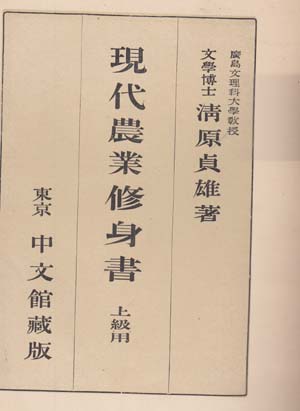 廣島文理科大學敎授
文學博士 淸原貞雄著
現代農業修身書 上級用
東京 中文館藏版